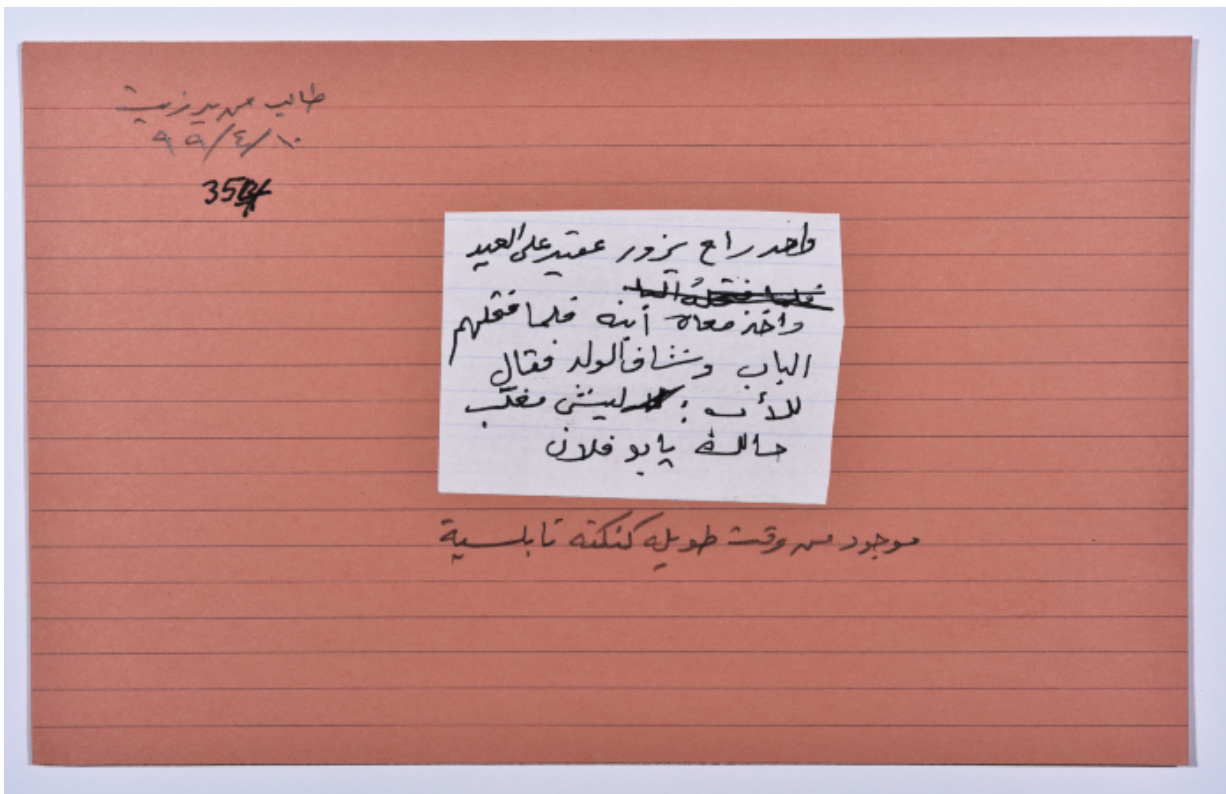 طالب من بير زيت
٩٩/٤/١٠
35
واحد راح يزور عقيد على العيد
فلما فتحله البا
واخذ معاه أبنه فلما فتحلهم
الباب وشاف الولد فقال
للأب : ليش مغلّب
حالك يا بو فلان
موجود من وقت طويل كنكته نابلسية